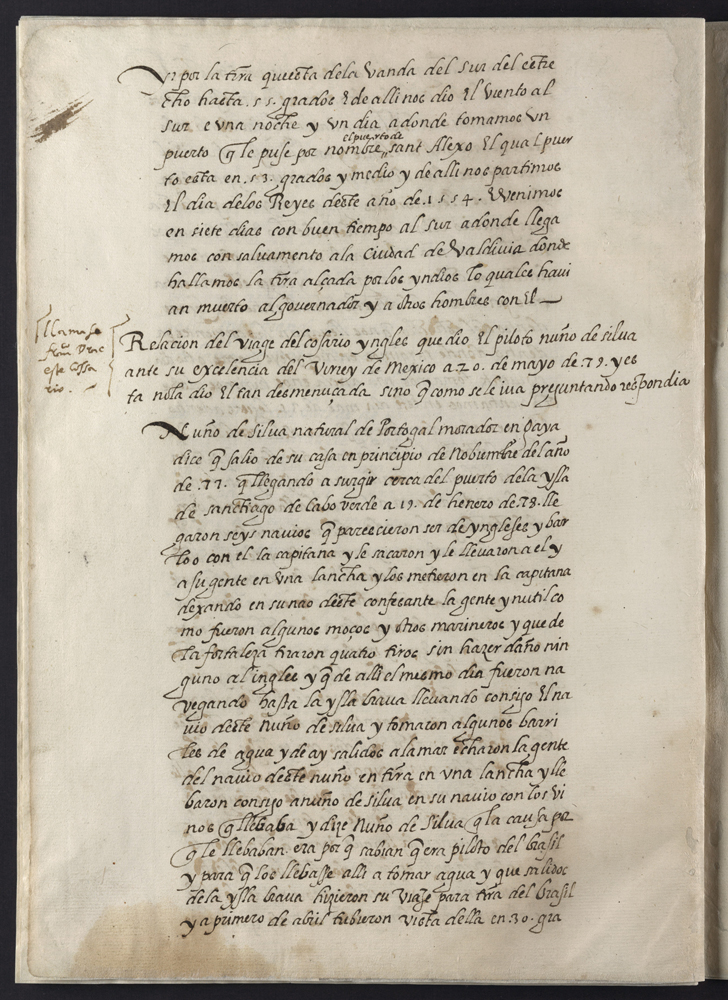 Vi por la trra questa dela vanda del sur del estre
cho hasta .55. grados E de alli nos dio El viento al
sur e vna noche y vn dia adonde tomamos vn
el puerto de
puerto q̃ le puse por nombre sant Alexo El qual puer
to esta en .53. grados y medio y de alli nos partimos
El dia delos Reyes deste año de .1554. E venimos
en siete dias con buen tiempo al sur adonde llega
mos con saluamento ala Ciudad de Valdiuia donde
hallamos la trra alçada por los yndios lo qual se havi
an muerto al gouernador y a otros hombres con El —
llamase
franco Drac
este Cossa
rio.
Relacion del viage del cosario yngles que dio El piloto nuño de silua
ante su excelencia del Virrey de Mexico a 20. de mayo de .79. y es
ta no la dio El tan desmenuçada sino q̃ como se le iua preguntando respondia
Nuño de Silua natural de Portogal morador en Gaya
dice q̃ salio de su casa en principio de Nobumbre del año
de .77. q̃ llegando a surgir cerca del puerto dela ysla
de sanctiago de Cabo verde a 19. de henero de .78. lle
garon seys nauios q̃ parescieron ser de yngleses y bar
loo con el la capitana y le sacaron y le lleuaron a el y
a su gente en vna lancha y los metieron en la capitana
dexando en su nao deste confesante la gente ynutil co
mo fueron algunos moços y otros marineros y que de
la fortaleza tiraron quatro tiros sin hazer daño nin
guno al ingles y q̃ de alli el mesmo dia fueron na
vegando hasta la ysla braua lleuando consigo El na
uio deste Nuño de silua y tomaron algunos barri
les de agua y de ay salidos ala mar echaron la gente
del nauio deste nuño en trra en vna lancha y lle
baron consigo a nuño de Silua en su nauio con los vi
nos q̃ llebaba y dize Nuño de Silua q̃ la causa por
q̃ le llebaban era por q̃ sabian q̃ era piloto del brasil
y para q̃ los llebasse alli a tomar agua y que salidos
dela ysla braua hizieron su viaje para trra del brasil
y a primero de abril tubieron vista della en .30. gra